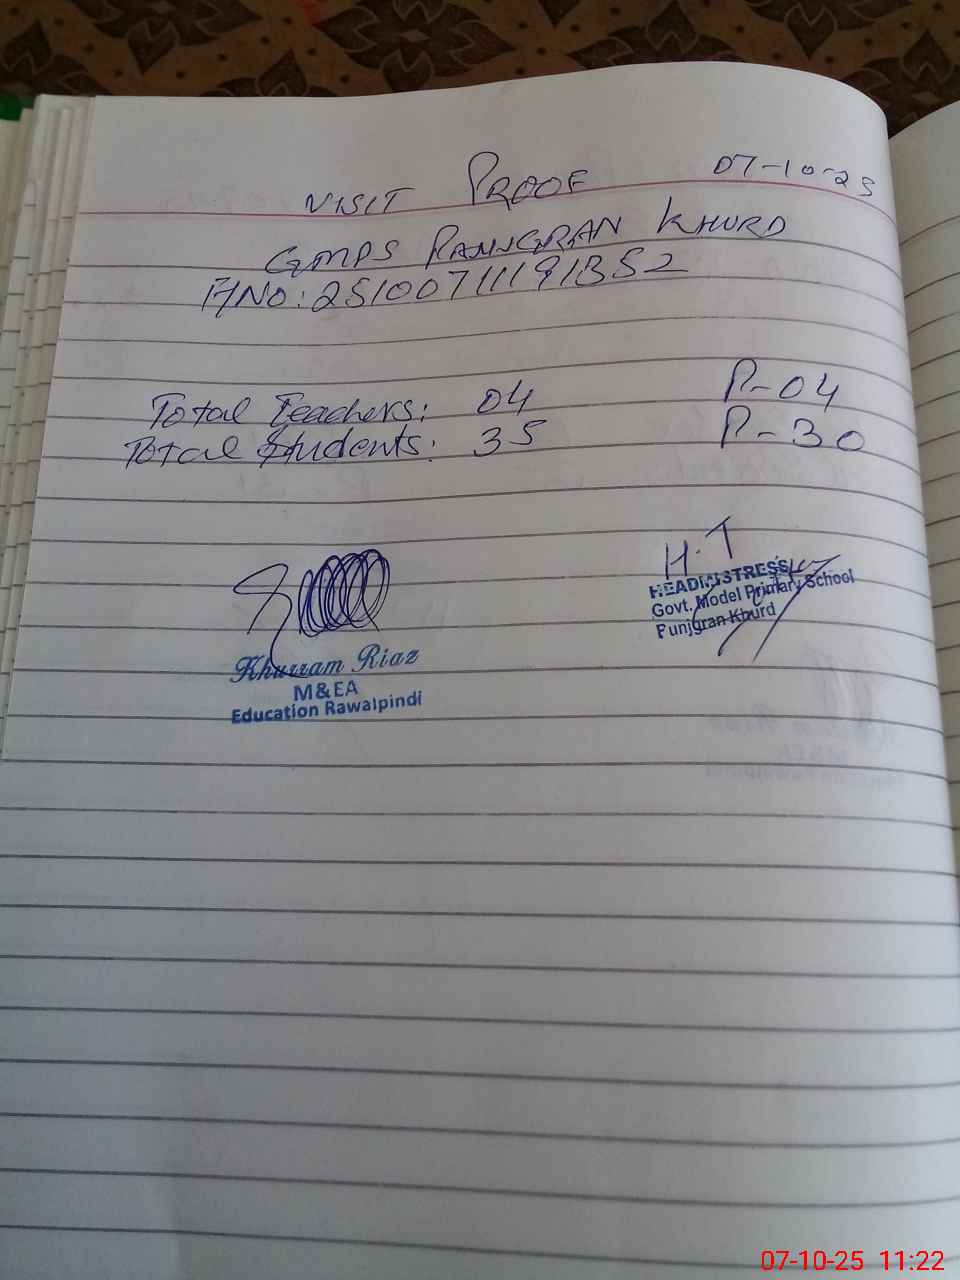 VISIT PROOF 07-10-25
GMPS PANJGRAN KHURD
A/NO: 25100711191352
Total Teachers: 04 P-04
Total Students: 35 P-30
H.T
HEADMISTRESS
Govt. Model Primary School
Punjgran Khurd
Khurram Riaz
M&EA
Education Rawalpindi
07-10-25 11:22